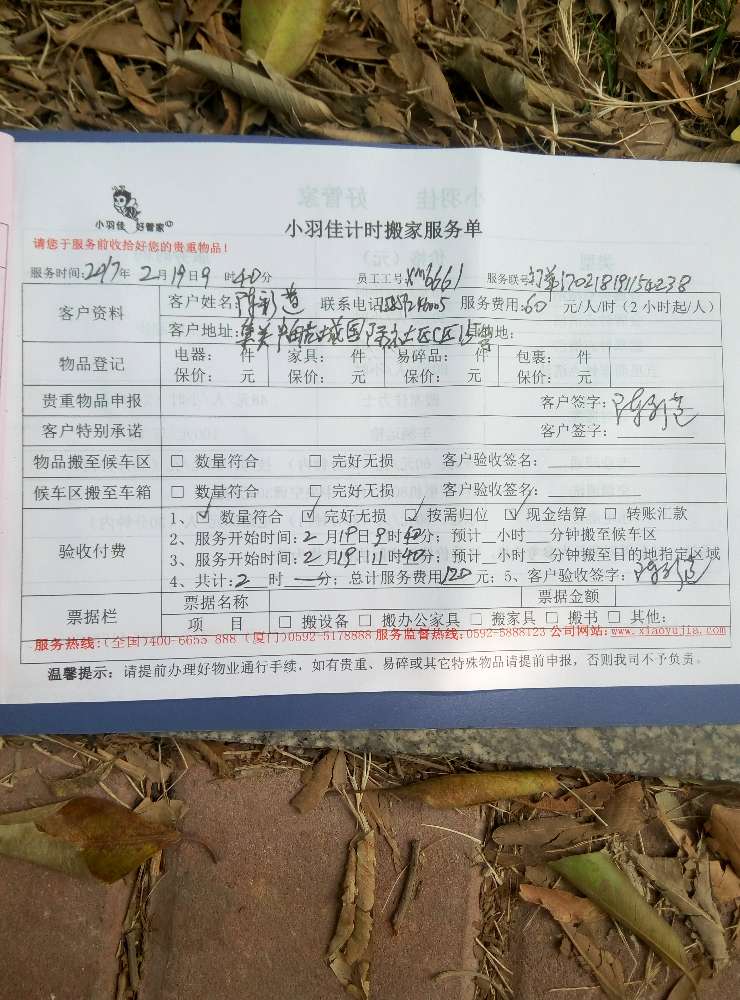 小羽佳 好管家
小羽佳计时搬家服务单
请您于服务前收拾好您的贵重物品！
服务时间:2017年2月19日9时40分 员工工号:xm6661 服务联号:
客户资料 客户姓名: 联系电话: 服务费用:60元/人/时（2小时起/人）
客户地址:
物品登记 电器: 件 家具: 件 易碎品: 件 包裹: 件
保价: 元 保价: 元 保价: 元 保价: 元
贵重物品申报 客户签字:
客户特别承诺 客户签字:
物品搬至候车区 □ 数量符合 □ 完好无损 客户验收签名:
候车区搬至车箱 □ 数量符合 □ 完好无损 客户验收签名:
验收付费 1、☑ 数量符合 ☑ 完好无损 ☑ 按需归位 ☑ 现金结算 □ 转账汇款
2、服务开始时间:2月19日9时40分; 预计__小时__分钟搬至候车区
3、服务开始时间:2月19日11时40分; 预计__小时__分钟搬至目的地指定区域
4、共计:2时—分; 总计服务费用120元; 5、客户验收签字:
票据栏 票据名称 票据金额
项 目 □ 搬设备 □ 搬办公家具 □ 搬家具 □ 搬书 □ 其他:
服务热线:(全国)400-6655 888 (厦门)0592-5178888 服务监督热线:0592-5888123 公司网站:www.xiaoyujia.com
温馨提示: 请提前办理好物业通行手续，如有贵重、易碎或其它特殊物品请提前申报，否则我司不予负责。